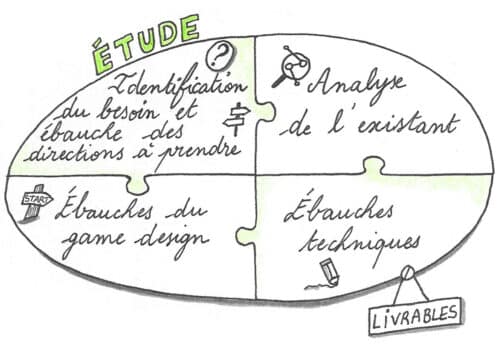 ÉTUDE
Identification
du besoin et
ébauche des
directions à prendre
Analyse
de l'existant
START
Ébauches du
game design
Ébauches
techniques
LIVRABLES